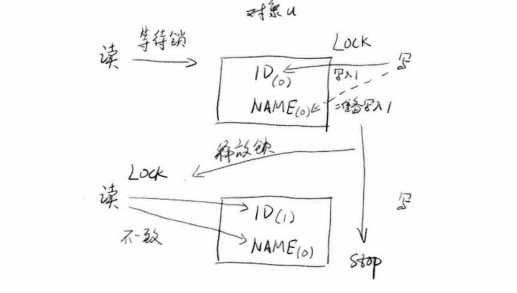 对象u
等待锁
LOCK
读
写
ID(0)
写入1
NAME(0)
准备写入1
释放锁
LOCK
读
写
ID(1)
不一致
NAME(0)
stop